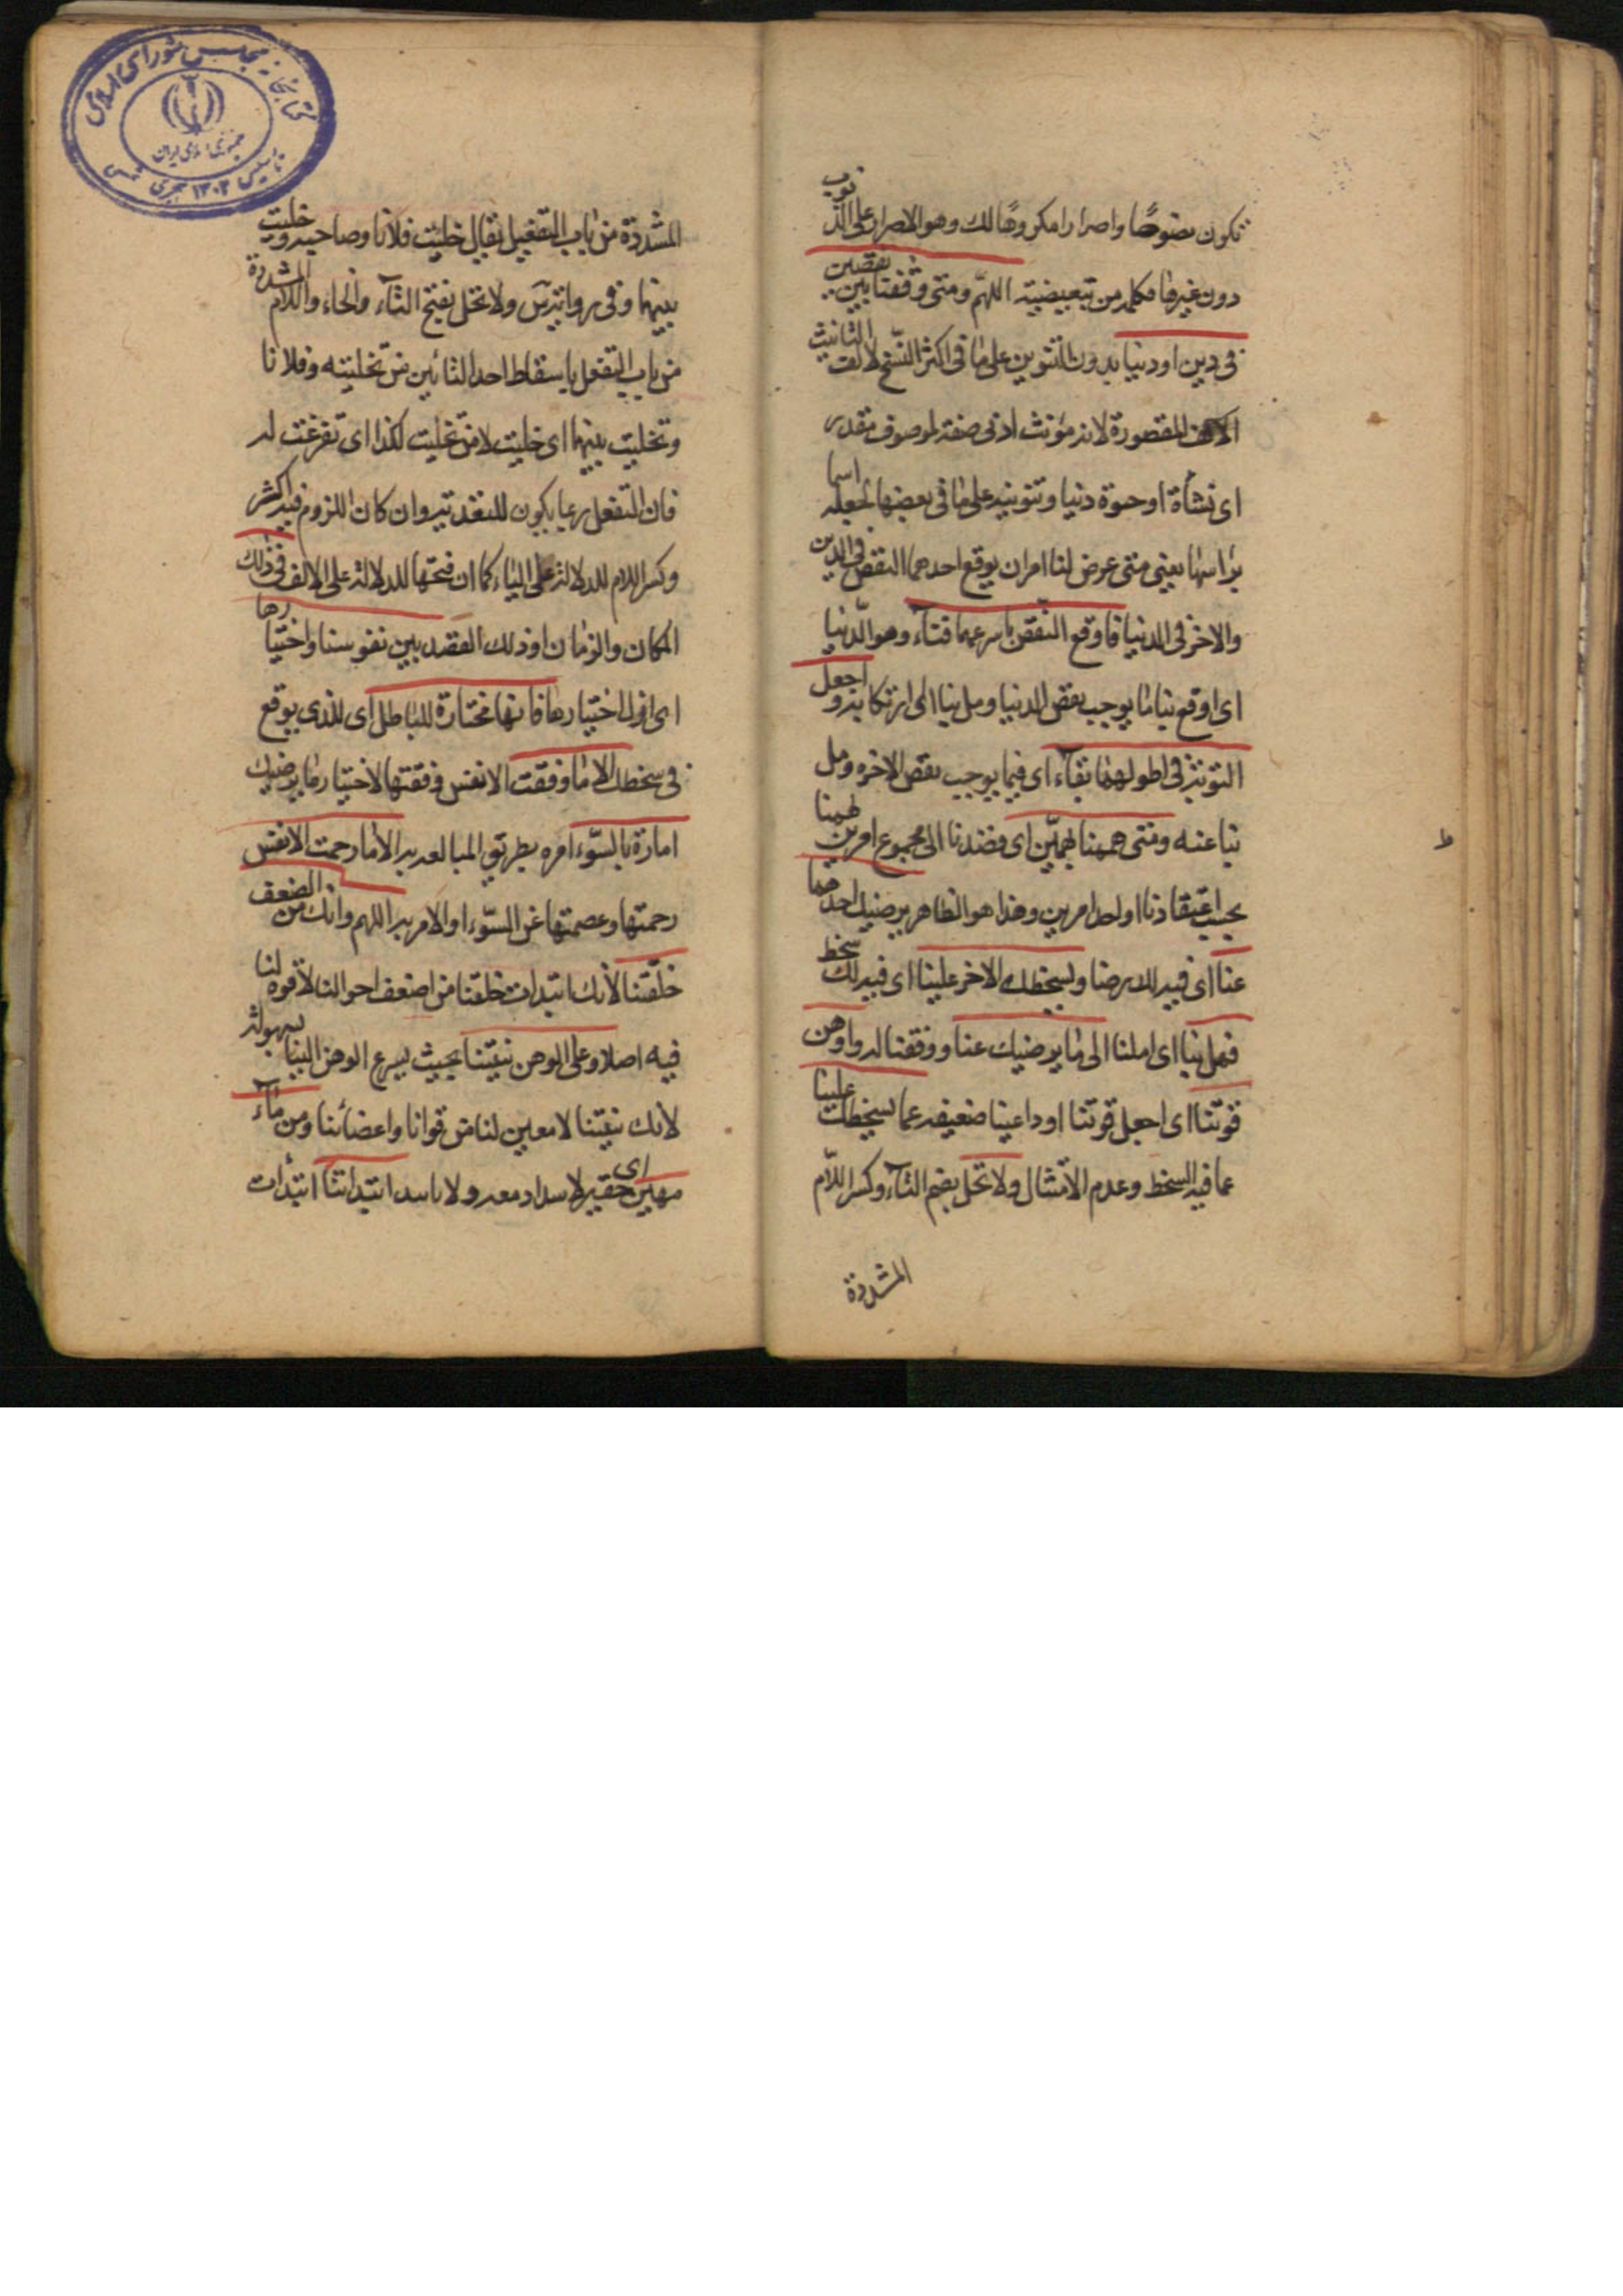 تكون نصوصًا واصرارا مكروهًا لك وهو الاصرار على الذنوب
دون غيرها فكلمه من تبعيضيته اللهمّ ومتى وقفنا بين نقصين
فى دين او دنيا بدون التنوين على ما فى اكثر النسخ لالف التانيث
المقصورة لانه مؤنث ادنى صفة لموصوف مقدر
اى نشأة او حيوة دنيا وتنوينه على ما فى بعضها لجعله اسما
براسها يعنى متى عرض لنا امران يوقع احدهما النقص فى الدين
والاخر فى الدنيا فاوقع النّقص باسرعهما فنآء وهو الدّنيا
اى اوقع بنا ما يوجب نقص الدنيا ومل بنا الى ارتكابه و اجعل
التوبة فى اطولهما بقآء اى فيما يوجب نقص الاخره ومل
بنا عنه ومتى هممنا بهمّين اى قصدنا الى مجموع امرين لهمنا
بحسب اعتقادنا او احد امرين وهذا هو الظاهر يرضيك احدهما
عنا اى فيه لك رضا ويسخطك الاخر علينا اى فيه لك سخط
فمل بنا اى املنا الى ما يرضيك عنا ووفقنا له واوهن
قوتنا اى اجعل قوتنا او داعينا ضعيفه عما يسخطك علينا
عما فيه السخط وعدم الامتثال ولا تخل بضم التآء وكسر اللّام
المشددة
المشددة من باب التفعيل يقال خليت فلانا وصاحبه وخليت
بينهما وفى رواية س ولا تخل بفتح التآء والخاء واللام المشددة
من باب التفعل باسقاط احد التائين من تخليته وفلانا
وتخليت بينهما اى خليت لا من تخليت لكذا اى تفرغت له
فان التفعل ربما يكون للتعدية وان كان اللزوم فيه اكثر
وكسر اللام للدلالة على الياء كما ان فتحها للدلالة على الالف فى ذلك
المكان والزمان او ذلك القصد بين نفوسنا واختيارها
اى اول اختيارها فانها مختارة للباطل اى للذى يوقع
فى سخطك الا ما وفقت الا نفس وفقتها لاختيار ما يرضيك
امارة بالسّوء امره بطريق المبالغه به الا ما رحمت الا نفس
رحمتها وعصمتها عن السّوء او الامر به اللهم وانك من الضعف
خلقتنا لانك ابتدات خلقنا من اضعف احوالنا لا قوه لنا
فيه اصلا وعلى الوهن بنيتنا بحيث يسرع الوهن الينا بسهولة
لانك بنيتنا لا معين لنا من قوانا واعضائنا ومن مآء
مهين اى حقير لا سداد معه ولا باسه ابتداتنا ابتدات
كتابخانه مجلس شورای اسلامی
جمهوری اسلامی ایران
تاسیس ۱۳۰۲ هجری شمسی